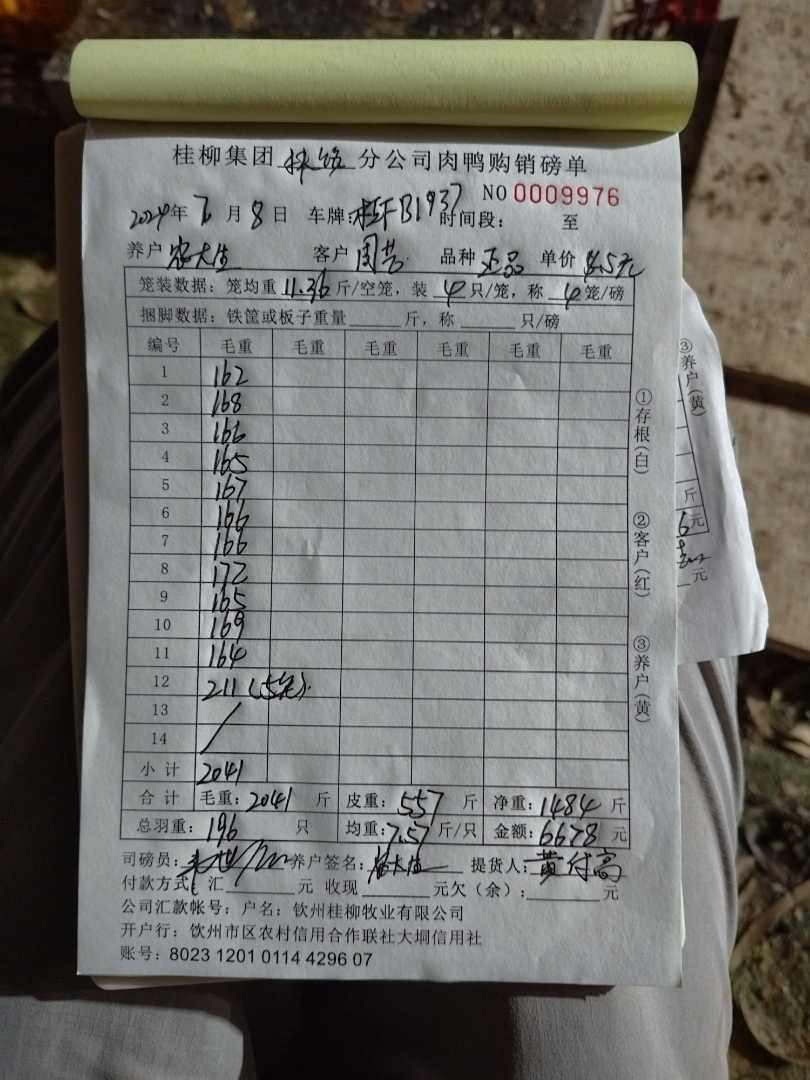 桂柳集团 分公司肉鸭购销磅单
NO 0009976
2024年7月8日 车牌:桂FB1937 时间段: 至
养户 农大生 客户 周芸 品种 正品 单价 4.5元
笼装数据：笼均重 11.36 斤/空笼，装 4 只/笼，称 4 笼/磅
捆脚数据：铁筐或板子重量 斤，称 只/磅
编号 毛重 毛重 毛重 毛重 毛重 毛重
1 162
2 168
3 166
4 165
5 167
6 166
7 166
8 172
9 165
10 169
11 164
12 211(5笼).
13 /
14
小计 2041
合计 毛重: 2041 斤 皮重: 557 斤 净重: 1484 斤
总羽重: 196 只 均重: 7.57 斤/只 金额: 6678 元
司磅员: 养户签名: 农大生 提货人: 黄付高
付款方式: 汇 元 收现 元欠（余）: 元
公司汇款帐号：户名：钦州桂柳牧业有限公司
开户行：钦州市区农村信用合作联社大垌信用社
账号：8023 1201 0114 4296 07
①存根(白)
②客户(红)
③养户(黄)
③养户(黄)
斤
6元
元